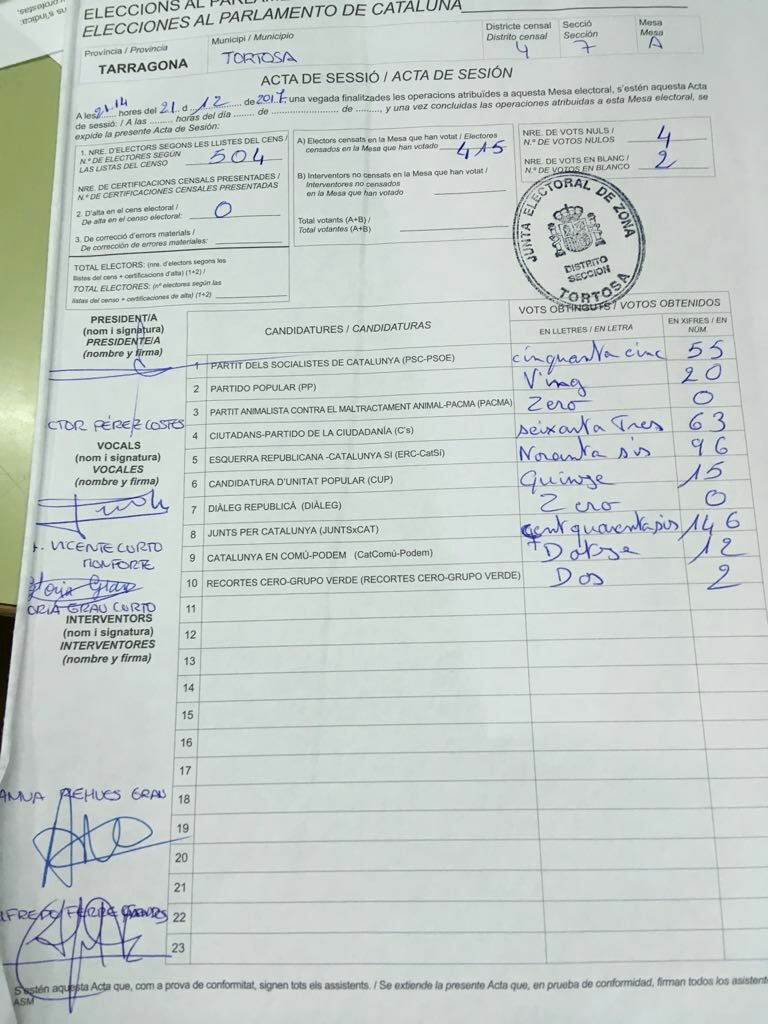 ELECCIONS AL
ELECCIONES AL PARLAMENTO DE CATALUÑA
Provincia / Provincia
TARRAGONA
Municipi / Municipio
TORTOSA
Districte censal
Distrito censal
4
Secció
Sección
7
Mesa
Mesa
A
ACTA DE SESSIÓ / ACTA DE SESIÓN
A les 21.14 hores del 21 d 12 de 2017, una vegada finalitzades les operacions atribuïdes a aquesta Mesa electoral, s'estén aquesta Acta
de sessió: / A las ......... horas del día ........ de ........................ de ........, y una vez concluidas las operaciones atribuidas a esta Mesa electoral, se
expide la presente Acta de Sesión:
1. NRE. D'ELECTORS SEGONS LES LLISTES DEL CENS /
N.º DE ELECTORES SEGÚN
LAS LISTAS DEL CENSO
504
NRE. DE CERTIFICACIONS CENSALS PRESENTADES /
N.º DE CERTIFICACIONES CENSALES PRESENTADAS
2. D'alta en el cens electoral /
De alta en el censo electoral:
0
3. De correcció d'errors materials /
De corrección de errores materiales:
TOTAL ELECTORS: (nre. d'electors segons les
llistes del cens + certificacions d'alta) (1+2) /
TOTAL ELECTORES: (nº electores según las
listas del censo + certificaciones de alta) (1+2)
A) Electors censats en la Mesa que han votat / Electores
censados en la Mesa que han votado
415
B) Interventors no censats en la Mesa que han votat /
Interventores no censados
en la Mesa que han votado
Total votants (A+B) /
Total votantes (A+B)
NRE. DE VOTS NULS /
N.º DE VOTOS NULOS
4
NRE. DE VOTS EN BLANC /
N.º DE VOTOS EN BLANCO
2
JUNTA ELECTORAL DE ZONA
DISTRITO
SECCION
TORTOSA
PRESIDENT/A
(nom i signatura)
PRESIDENTE/A
(nombre y firma)
CANDIDATURES / CANDIDATURAS
VOTS OBTINGUTS / VOTOS OBTENIDOS
EN LLETRES / EN LETRA
EN XIFRES / EN NÚM.
1 PARTIT DELS SOCIALISTES DE CATALUNYA (PSC-PSOE) cinquanta cinc 55
2 PARTIDO POPULAR (PP) Ving 20
3 PARTIT ANIMALISTA CONTRA EL MALTRACTAMENT ANIMAL-PACMA (PACMA) Zero 0
4 CIUTADANS-PARTIDO DE LA CIUDADANÍA (C's) seixanta Tres 63
5 ESQUERRA REPUBLICANA -CATALUNYA SI (ERC-CatSí) Noranta sis 96
6 CANDIDATURA D'UNITAT POPULAR (CUP) Quinze 15
7 DIÀLEG REPUBLICÀ (DIÀLEG) Zero 0
8 JUNTS PER CATALUNYA (JUNTSxCAT) cent quaranta sis 146
9 CATALUNYA EN COMÚ-PODEM (CatComú-Podem) Dotze 12
10 RECORTES CERO-GRUPO VERDE (RECORTES CERO-GRUPO VERDE) Dos 2
11
12
13
14
15
16
17
18
19
20
21
22
23
CTOR PÉREZ COSTES
VOCALS
(nom i signatura)
VOCALES
(nombre y firma)
VICENTE CURTO
MONFORTE
ORIA GRAU CURTO
INTERVENTORS
(nom i signatura)
INTERVENTORES
(nombre y firma)
ANNA REHUES GRAU
LFREDO FERRE
S'estén aquesta Acta que, com a prova de conformitat, signen tots els assistents. / Se extiende la presente Acta que, en prueba de conformidad, firman todos los asistent
ASM